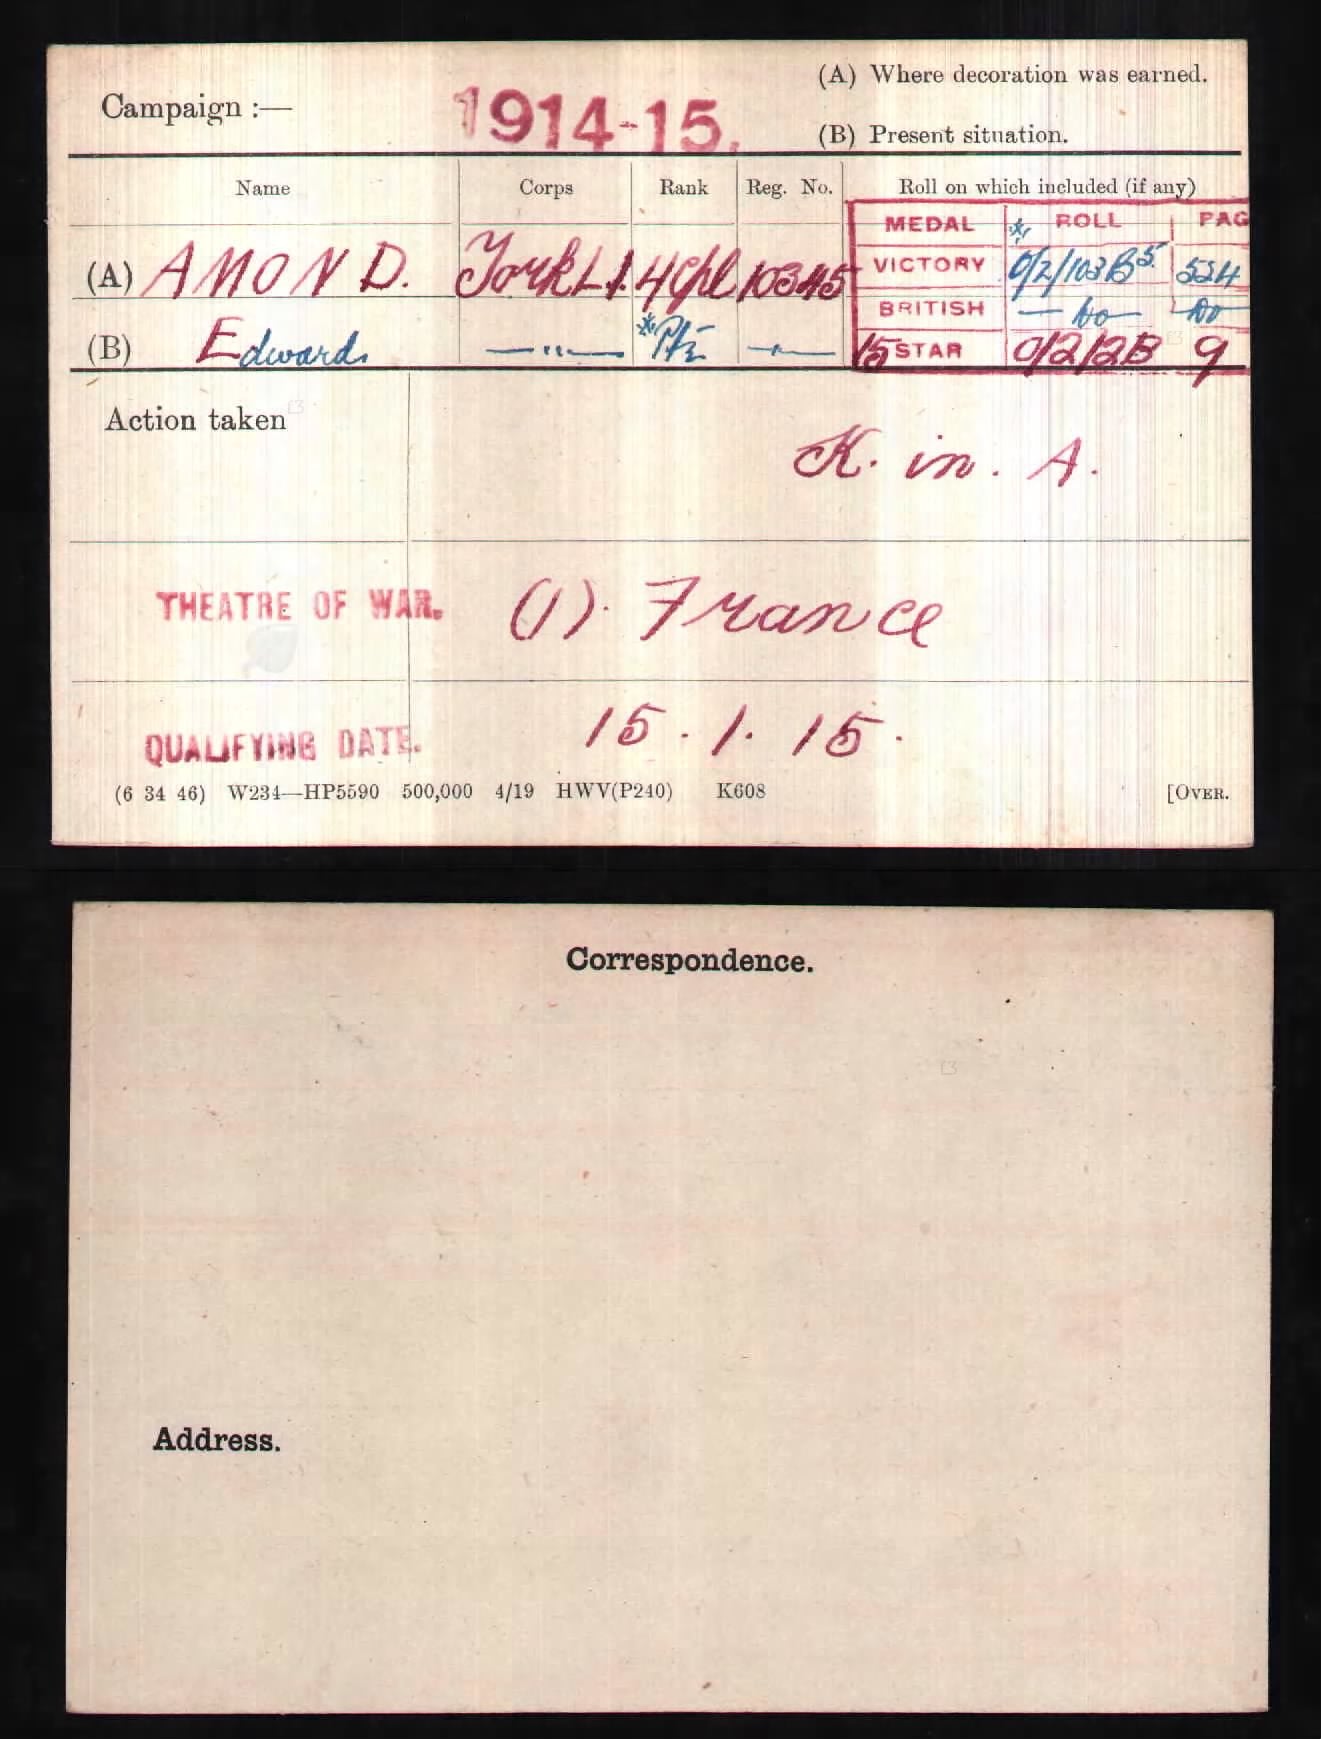 Campaign :— 1914-15. (A) Where decoration was earned.
(B) Present situation.
Name Corps Rank Reg. No. Roll on which included (if any)
MEDAL * ROLL PAG
(A) AMOND. York L.I. L/Cpl 10345 VICTORY O/2/103B5. 524
BRITISH — Do — Do
(B) Edward — " — * Pte — " — 15 STAR O/2/2B 9
Action taken
K. in. A.
THEATRE OF WAR. (1). France
QUALIFYING DATE. 15.1.15.
(6 34 46) W234—HP5590 500,000 4/19 HWV(P240) K608 [OVER.
Correspondence.
Address.